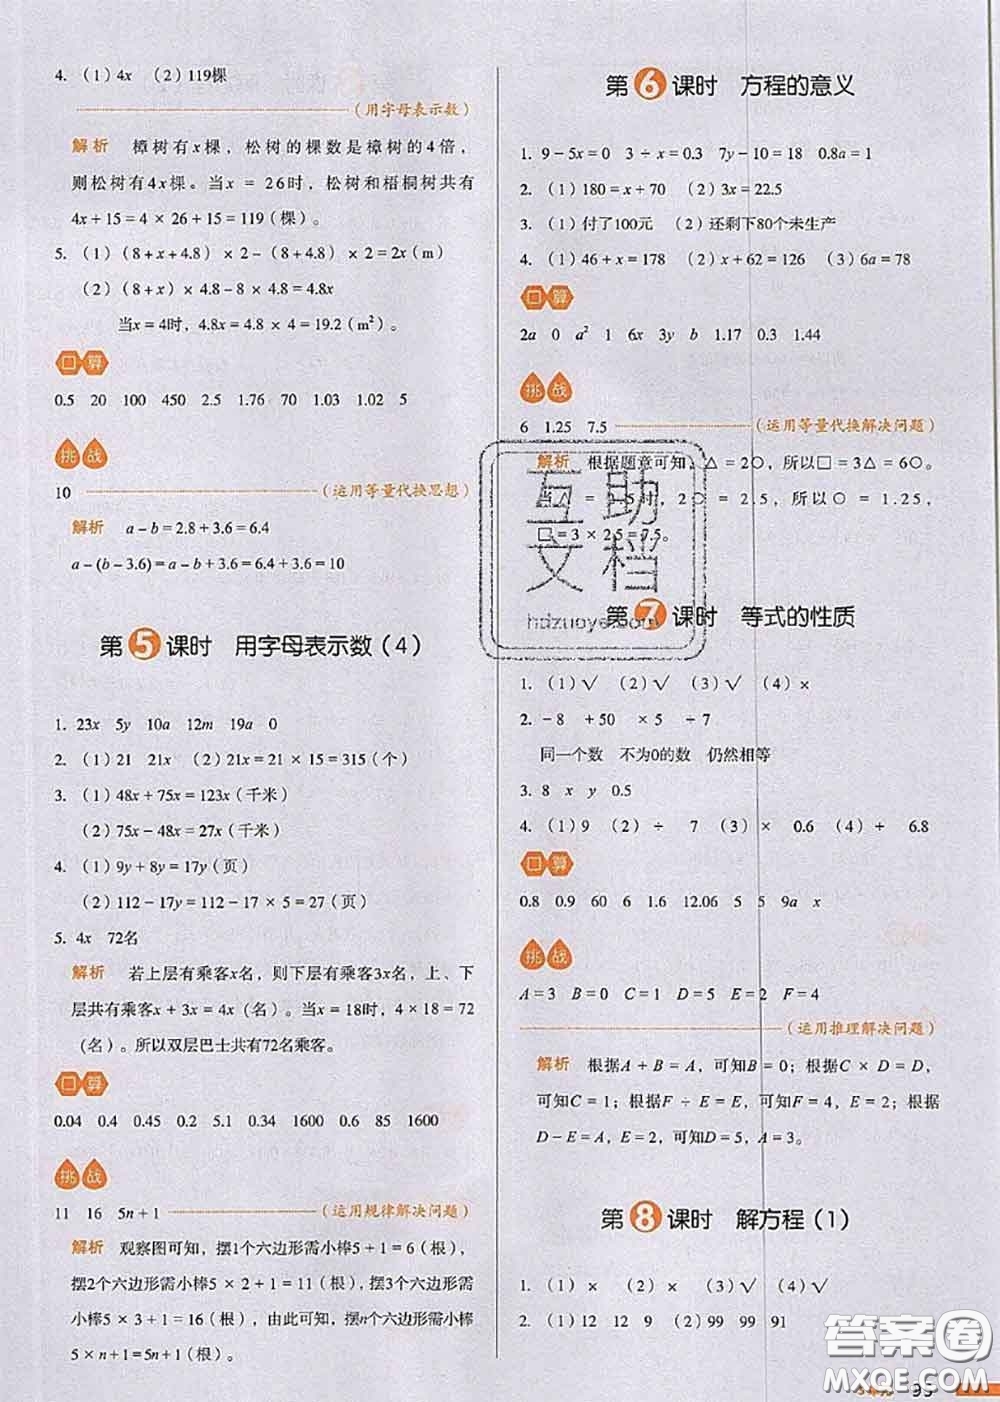 4. (1) 4x (2) 119棵
(用字母表示数)
解析 樟树有x棵，松树的棵数是樟树的4倍，
则松树有4x棵。当x = 26时，松树和梧桐树共有
4x + 15 = 4 × 26 + 15 = 119（棵）。
5. (1)（8 + x + 4.8）× 2 -（8 + 4.8）× 2 = 2x（m）
(2)（8 + x）× 4.8 - 8 × 4.8 = 4.8x
当x = 4时，4.8x = 4.8 × 4 = 19.2（m²）。
口算
0.5 20 100 450 2.5 1.76 70 1.03 1.02 5
挑战
10 (运用等量代换思想)
解析 a - b = 2.8 + 3.6 = 6.4
a - (b - 3.6) = a - b + 3.6 = 6.4 + 3.6 = 10
第5课时 用字母表示数（4）
1. 23x 5y 10a 12m 19a 0
2. (1) 21 21x (2) 21x = 21 × 15 = 315（个）
3. (1) 48x + 75x = 123x（千米）
(2) 75x - 48x = 27x（千米）
4. (1) 9y + 8y = 17y（页）
(2) 112 - 17y = 112 - 17 × 5 = 27（页）
5. 4x 72名
解析 若上层有乘客x名，则下层有乘客3x名，上、下
层共有乘客x + 3x = 4x（名）。当x = 18时，4 × 18 = 72
（名）。所以双层巴士共有72名乘客。
口算
0.04 0.4 0.45 0.2 5.1 0.34 1600 0.6 85 1600
挑战
11 16 5n + 1 (运用规律解决问题)
解析 观察图可知，摆1个六边形需小棒5 + 1 = 6（根），
摆2个六边形需小棒5 × 2 + 1 = 11（根），摆3个六边形需小棒
5 × 3 + 1 = 16（根），由此可知，摆n个六边形需小棒
5 × n + 1 = 5n + 1（根）。
第6课时 方程的意义
1. 9 - 5x = 0 3 ÷ x = 0.3 7y - 10 = 18 0.8a = 1
2. (1) 180 = x + 70 (2) 3x = 22.5
3. (1) 付了100元 (2) 还剩下80个未生产
4. (1) 46 + x = 178 (2) x + 62 = 126 (3) 6a = 78
口算
2a 0 a² 1 6x 3y b 1.17 0.3 1.44
挑战
6 1.25 7.5 (运用等量代换解决问题)
解析 根据题意可知，△ = 2○，所以□ = 3△ = 6○。
当△ = 2.5时，2○ = 2.5，所以○ = 1.25，
□ = 3 × 2.5 = 7.5。
互助
文档
hdzuoye.com
第7课时 等式的性质
1. (1) √ (2) √ (3) √ (4) ×
2. - 8 + 50 × 5 ÷ 7
同一个数 不为0的数 仍然相等
3. 8 x y 0.5
4. (1) 9 (2) ÷ 7 (3) × 0.6 (4) + 6.8
口算
0.8 0.9 60 6 1.6 12.06 5 5 9a x
挑战
A = 3 B = 0 C = 1 D = 5 E = 2 F = 4
(运用推理解决问题)
解析 根据A + B = A，可知B = 0；根据C × D = D，
可知C = 1；根据F ÷ E = E，可知F = 4，E = 2；根据
D - E = A，E = 2，可知D = 5，A = 3。
第8课时 解方程（1）
1. (1) × (2) × (3) √ (4) √
2. (1) 12 12 9 (2) 99 99 91
答案圈
MXQE.COM
95